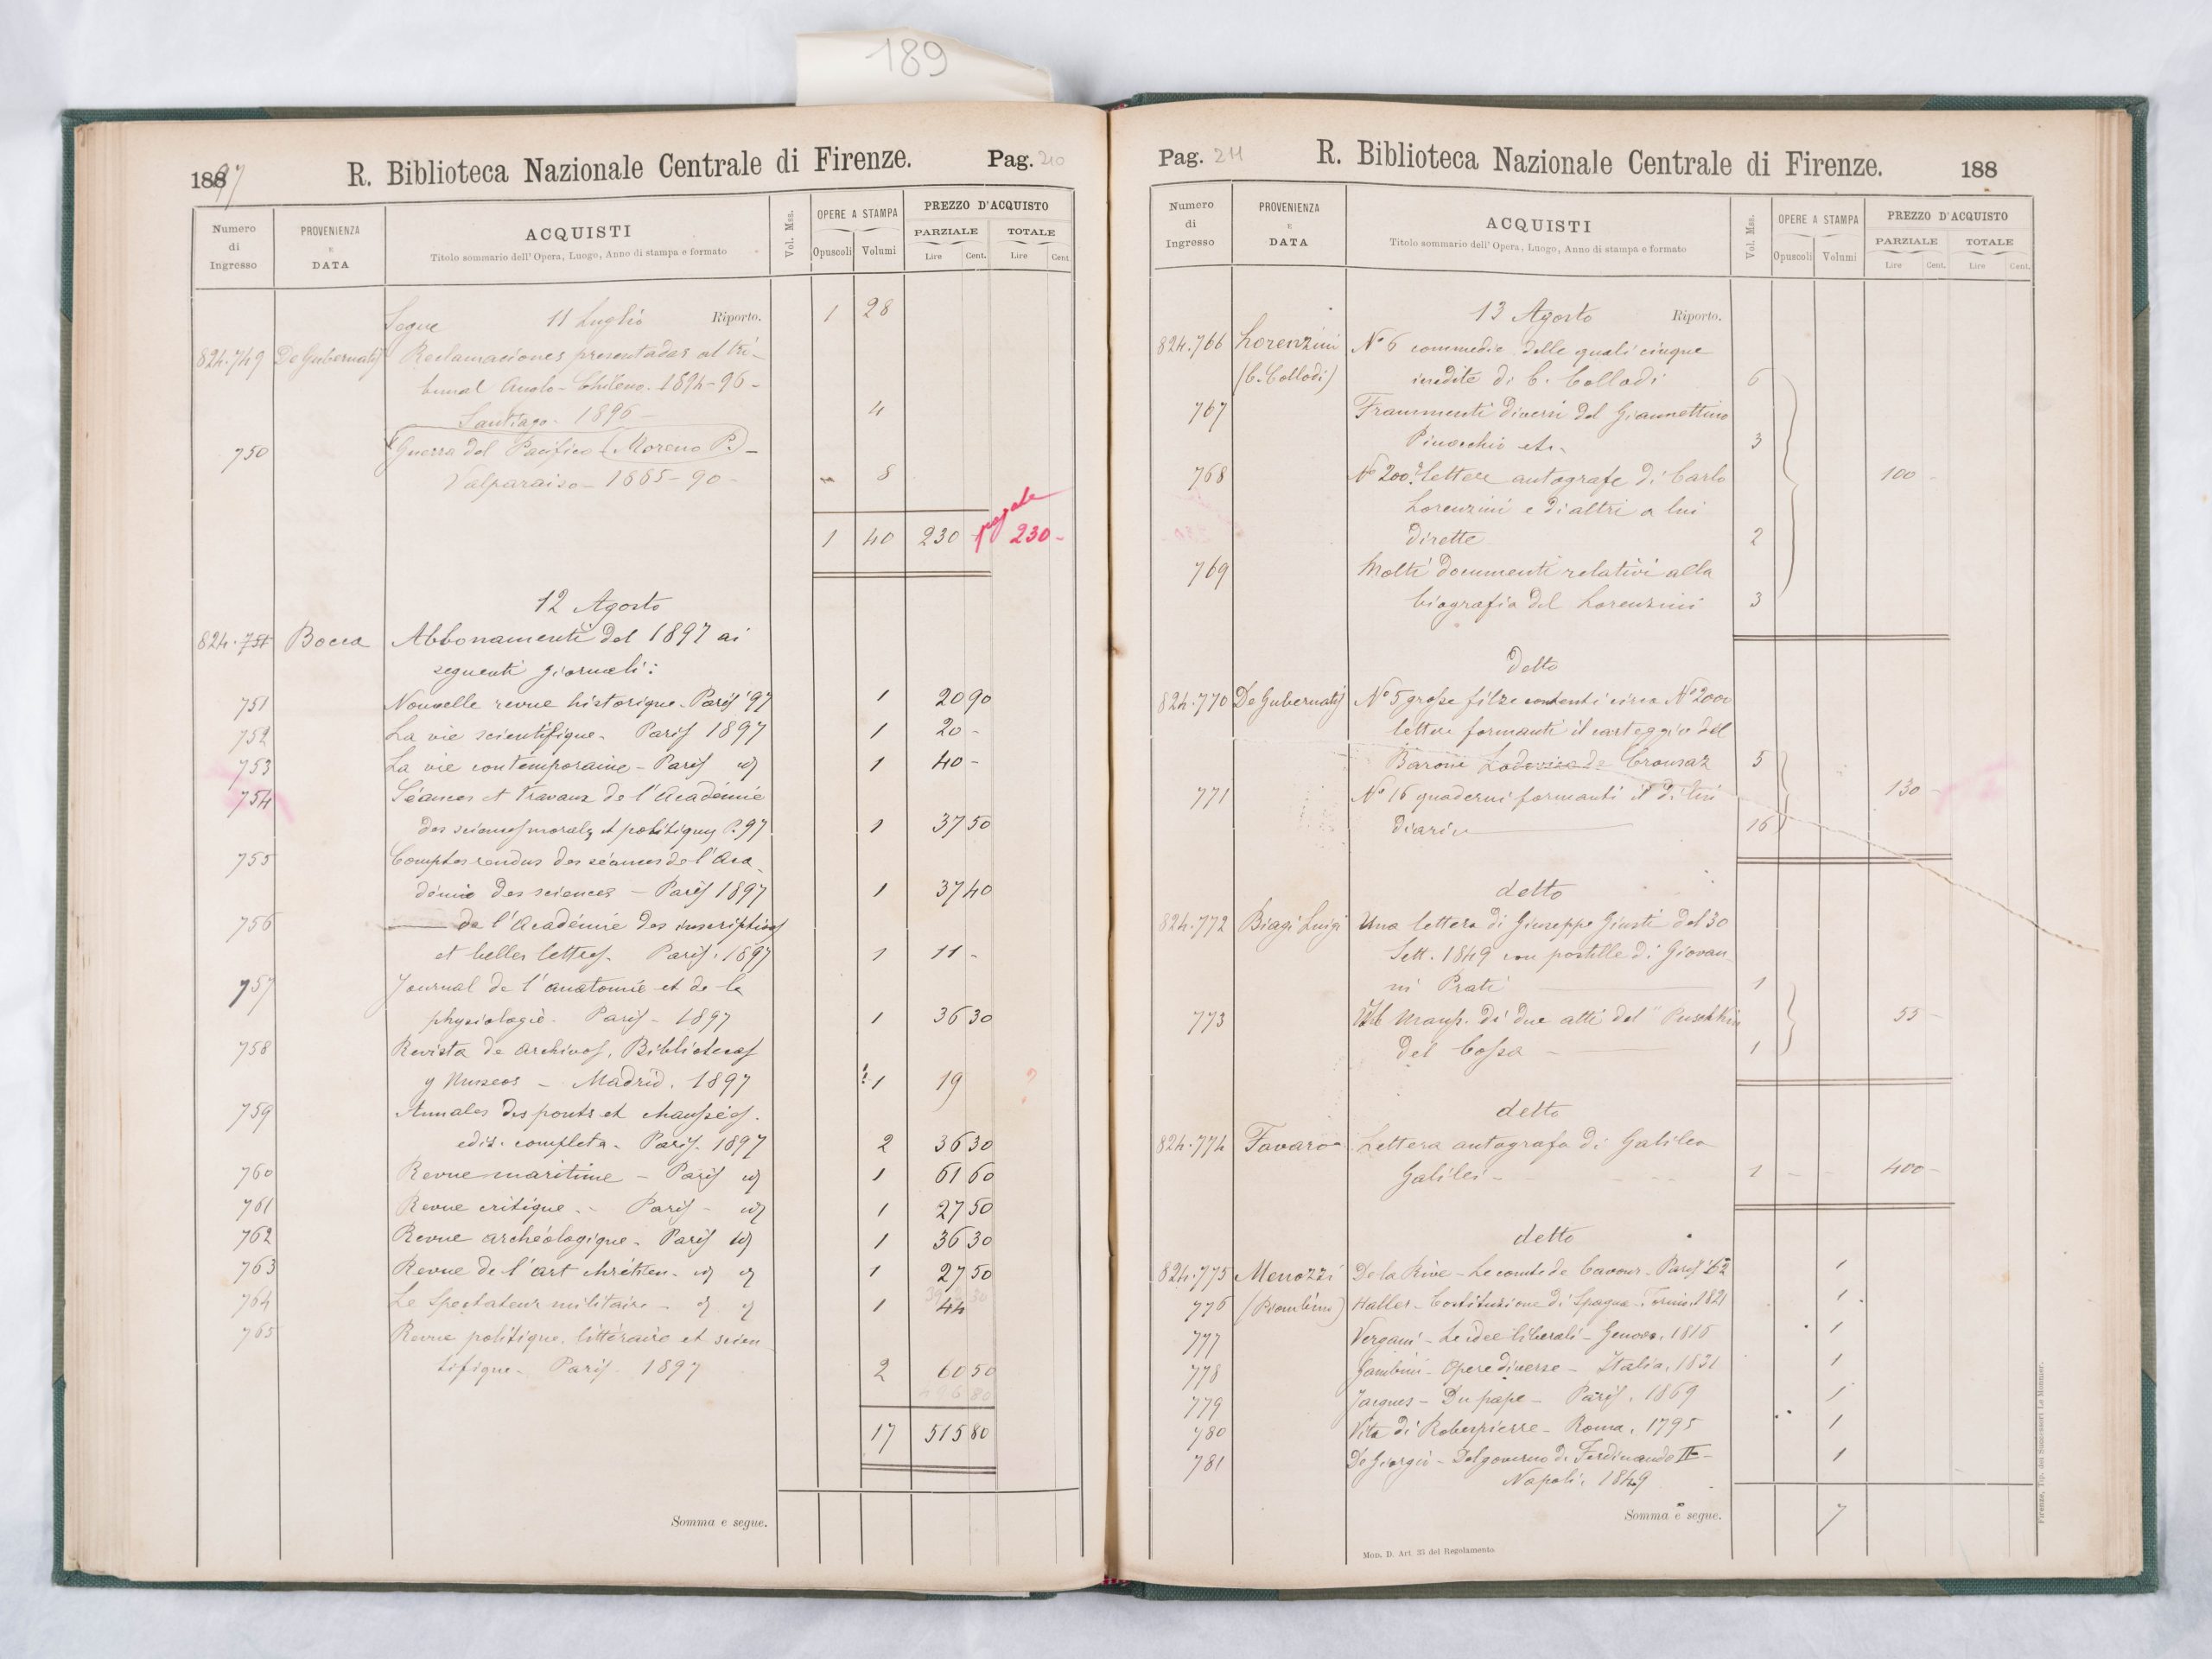 189
1897
R. Biblioteca Nazionale Centrale di Firenze.
Pag. 210
Numero di Ingresso
PROVENIENZA E DATA
ACQUISTI
Titolo sommario dell' Opera, Luogo, Anno di stampa e formato
Vol. Mss.
OPERE A STAMPA
Opuscoli Volumi
PREZZO D'ACQUISTO
PARZIALE TOTALE
Lire Cent. Lire Cent.
Segue 11 Luglio Riporto. 1 28
824.749 De Gubernatis Reclamaciones presentadas al tri-
bunal Anglo-Chileno. 1894-96-
Santiago. 1896- 4
750 Guerra del Pacifico (Moreno P.) -
Valparaiso - 1885-90- 8
1 40 230 - pagate 230-
12 Agosto
824.751 Bocca Abbonamenti del 1897 ai
seguenti giornali:
751 Nouvelle revue historique. Paris '97 1 20 90
752 La vie scientifique. Paris 1897 1 20 -
753 La vie contemporaine - Paris 1 40 -
754 Séances et travaux de l'Académie
des sciences morales et politiques P. 97 1 37 50
755 Comptes rendus des séances de l'Aca
démie des sciences - Paris 1897 1 37 40
756 de l'Académie des inscriptions
et belles lettres. Paris. 1897 1 11 -
757 Journal de l'anatomie et de la
physiologie. Paris - 1897 1 36 30
758 Revista de Archivos, Bibliotecas
y Museos - Madrid. 1897 ? 1 19 ?
759 Annales des ponts et chaussées.
ediz. completa. Paris. 1897 2 36 30
760 Revue maritime - Paris 1 61 60
761 Revue critique. - Paris - 1 27 50
762 Revue archéologique. Paris 1 36 30
763 Revue de l'art chrétien. 1 27 50
764 Le Spectateur militaire - 1 44
765 Revue politique, littéraire et scien
tifique - Paris - 1897 2 60 50
496 80
17 515 80
Somma e segue.
Pag. 211
R. Biblioteca Nazionale Centrale di Firenze.
188
Numero di Ingresso
PROVENIENZA E DATA
ACQUISTI
Titolo sommario dell' Opera, Luogo, Anno di stampa e formato
Vol. Mss.
OPERE A STAMPA
Opuscoli Volumi
PREZZO D'ACQUISTO
PARZIALE TOTALE
Lire Cent. Lire Cent.
13 Agosto Riporto.
824.766 Lorenzini N° 6 commedie delle quali cinque
(C. Collodi) inedite di C. Collodi 6
767 Frammenti diversi del Giannettino
Pinocchio etc. 3
768 N° 200 lettere autografe di Carlo 100 -
Lorenzini e di altri a lui
dirette 2
769 Molti documenti relativi alla
biografia del Lorenzini 3
detto
824.770 De Gubernatis N° 5 grosse filze contenti circa N° 2000
lettere formanti il carteggio del
Barone Lodovico de Crousaz 5
771 N° 16 quaderni formanti il di lui 130 -
diario 16
detto
824.772 Biagi Luigi Una lettera di Giuseppe Giusti del 30
Sett. 1849 con postille di Giovan
ni Prati 1
773 Manos. di due atti del "Puschkin 55 -
del Cossa - 1
detto
824.774 Favaro Lettera autografa di Galileo
Galilei - 1 - - 400 -
detto
824.775 Menozzi De la Rive - Le comte de Cavour - Paris '62 1
776 (Piombino) Haller - Costituzione di Spagna - Torino. 1821 1
777 Vergani - Le idee liberali - Genova. 1816 1
778 Gambini - Opere diverse - Italia, 1831 1
779 Jacques - Du pape - Paris, 1869 1
780 Vita di Robespierre - Roma, 1795 1
781 De Giorgio - Del governo di Ferdinando II - 1
Napoli, 1849
Somma e segue. 7
Mon. D. Art. 35 del Regolamento.
Firenze, Tip. dei Successori Le Monnier.